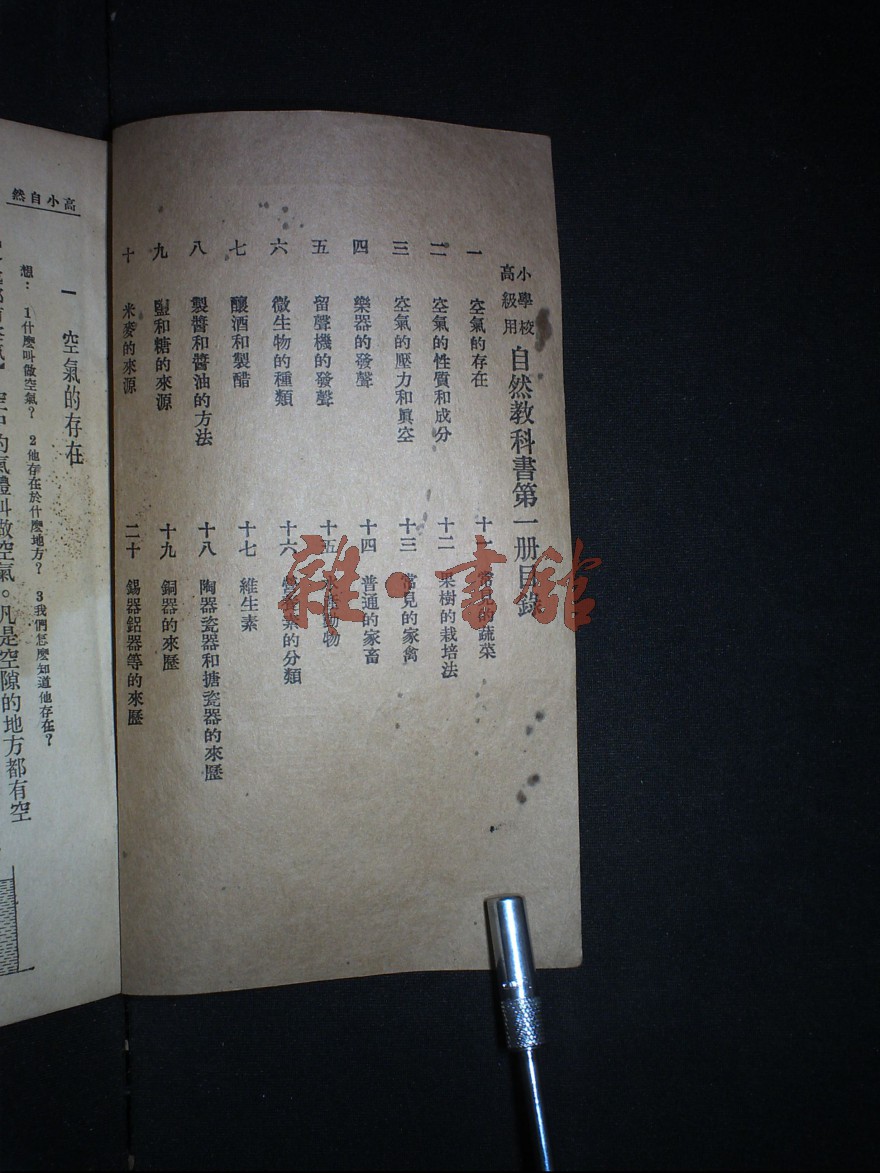 小學校高級用 自然教科書第一册目錄
一 空氣的存在
二 空氣的性質和成分
三 空氣的壓力和眞空
四 樂器的發聲
五 留聲機的發聲
六 微生物的種類
七 釀酒和製醋
八 製醬和醬油的方法
九 鹽和糖的來源
十 米麥的來源
十一 常見的蔬菜
十二 果樹的栽培法
十三 常見的家禽
十四 普通的家畜
十五 水產動物
十六 營養素的分類
十七 維生素
十八 陶器瓷器和搪瓷器的來歷
十九 銅器的來歷
二十 錫器鋁器等的來歷
雜·書館
高小自然
一 空氣的存在
想：1什麼叫做空氣？ 2他存在於什麼地方？ 3我們怎麼知道他存在？
空中的氣體叫做空氣。凡是空隙的地方都有空